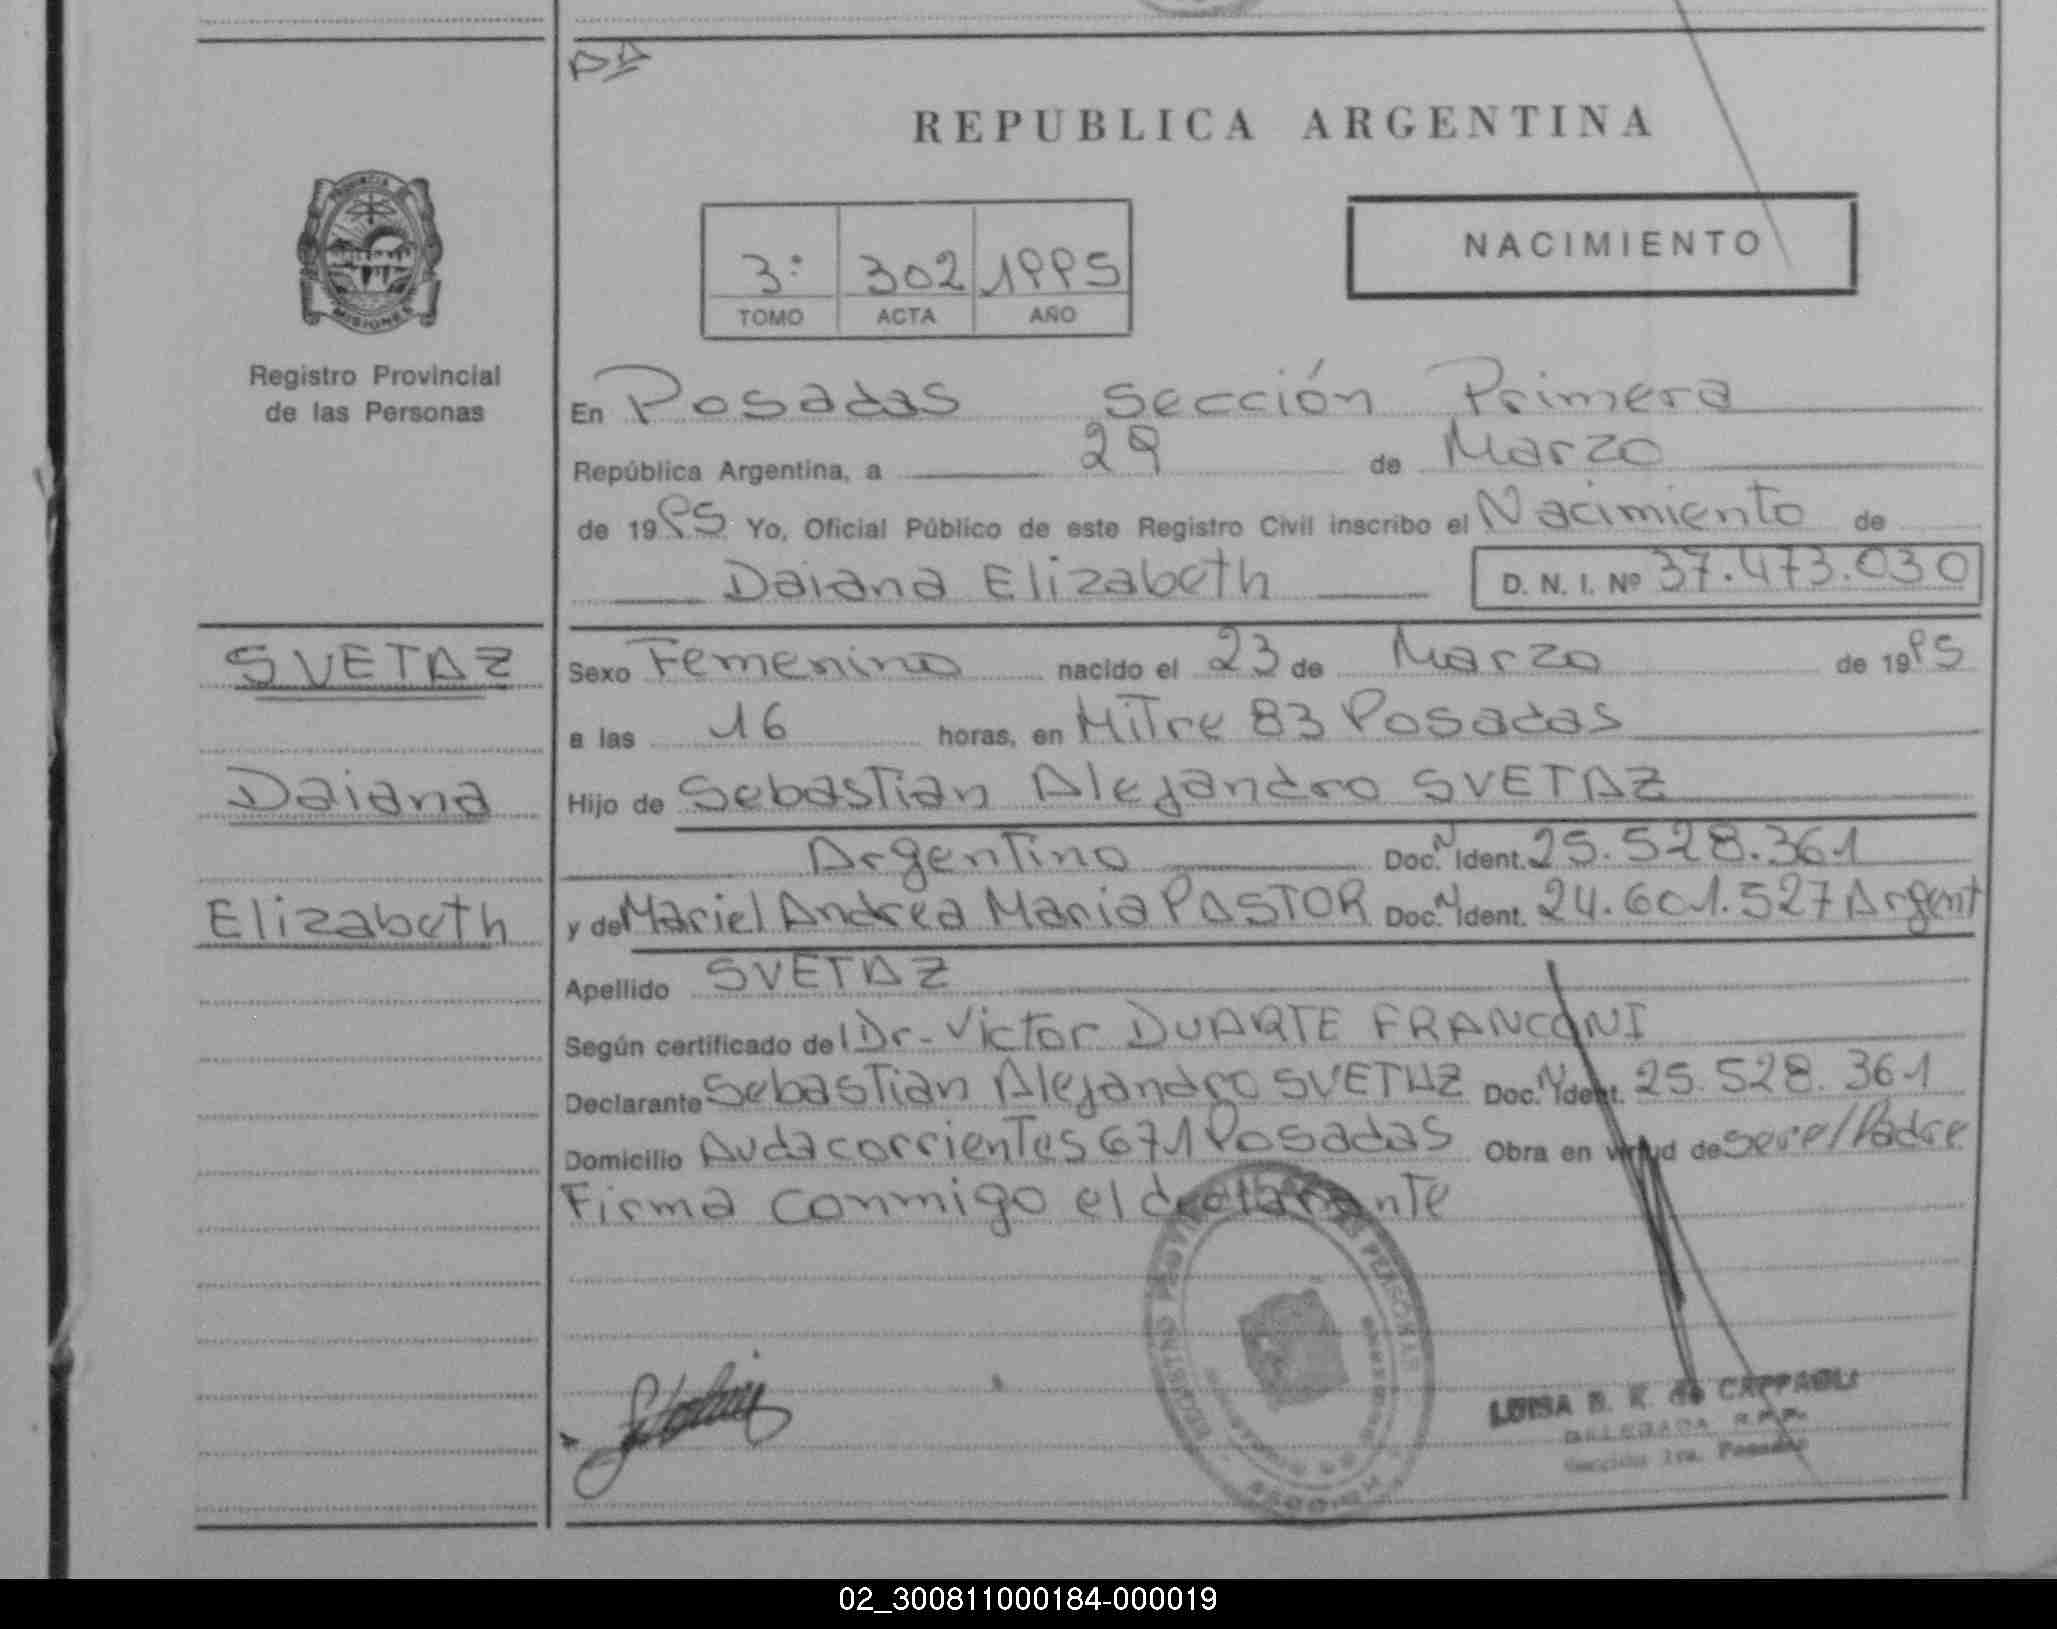 REPUBLICA ARGENTINA
PROVINCIA
MISIONES
Registro Provincial
de las Personas
3º 302 1995
TOMO ACTA AÑO
NACIMIENTO
En Posadas sección Primera
República Argentina, a 29 de Marzo
de 1995 Yo, Oficial Público de este Registro Civil inscribo el Nacimiento de
Daiana Elizabeth D. N. I. Nº 37.473.030
SVETAZ
Daiana
Elizabeth
Sexo Femenino nacido el 23 de Marzo de 1995
a las 16 horas, en Mitre 83 Posadas
Hijo de Sebastian Alejandro SVETAZ
Argentino Doc. N Ident. 25.528.361
y de Mariel Andrea Maria PASTOR Doc. N Ident. 24.601.527 Argent
Apellido SVETAZ
Según certificado del Dr- Victor DUARTE FRANCONI
Declarante Sebastian Alejandro SVETAZ Doc. N Ident. 25.528.361
Domicilio Avda corrientes 671 Posadas Obra en virtud de ser el Padre
Firma conmigo el declarante
LUISA B. K. de CAPPAGLI
DELEGADA R.P.P.
Sección 1ra. Posadas
02_300811000184-000019